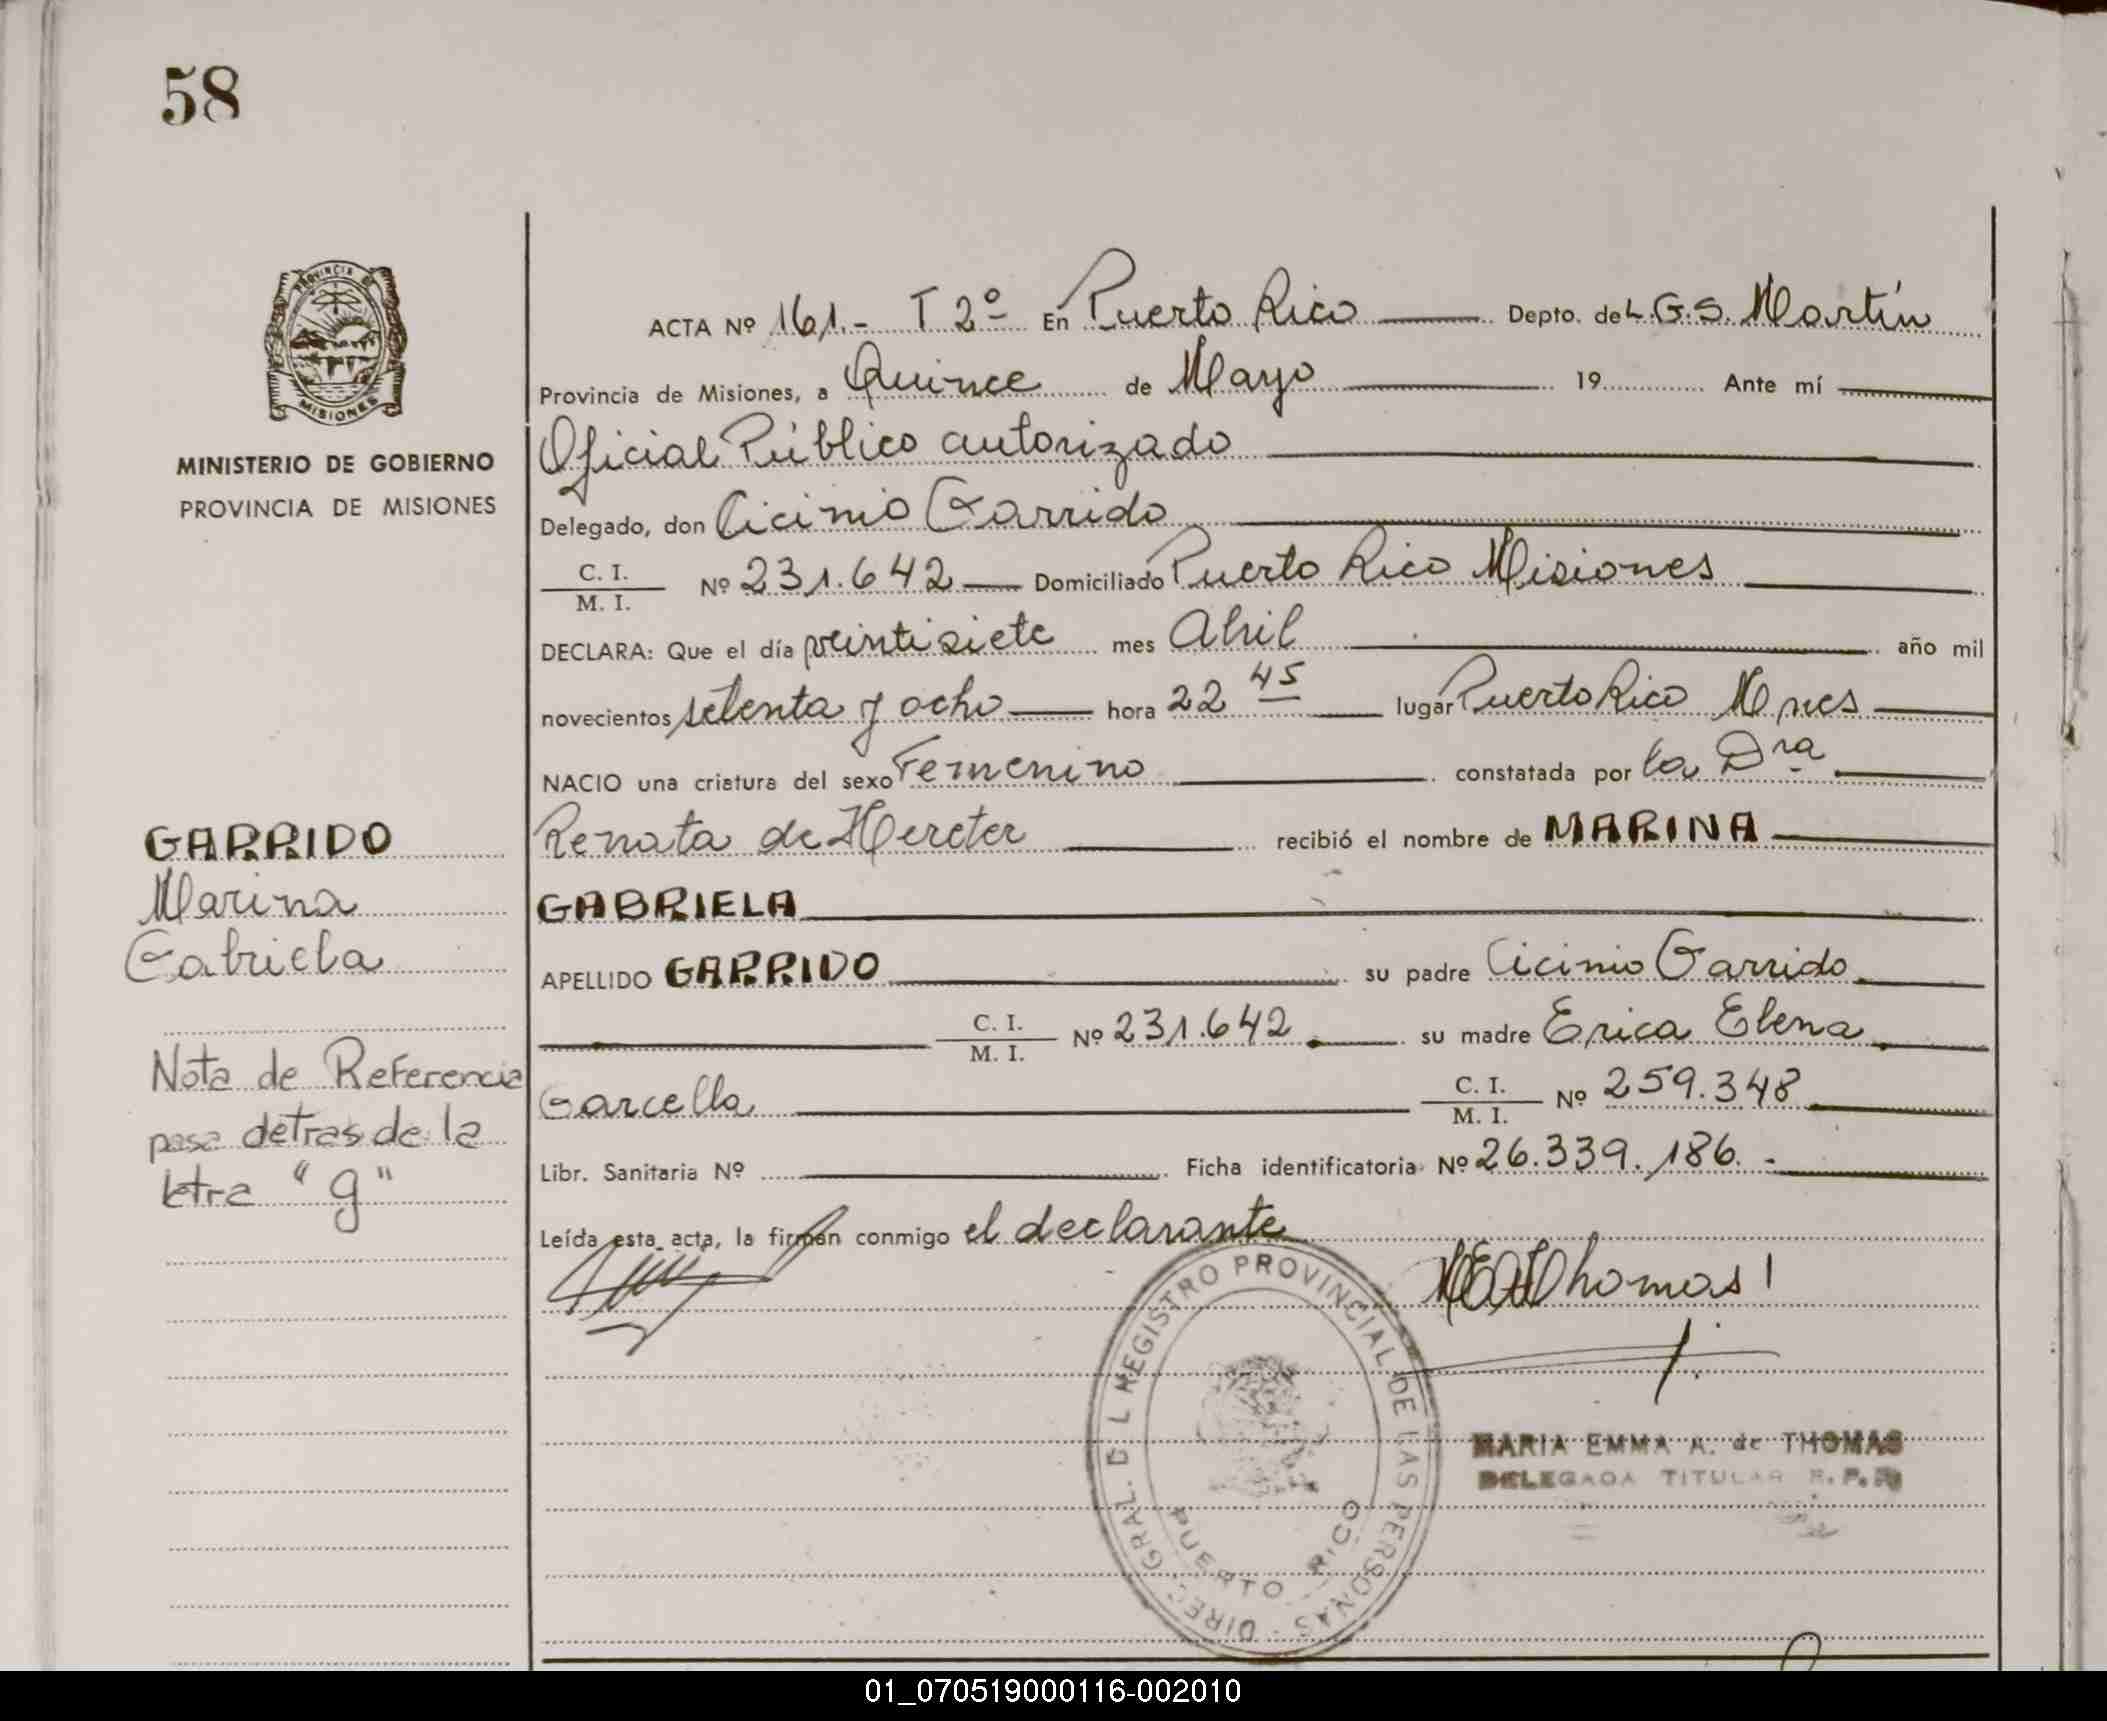 58
PROVINCIA DE
MISIONES
MINISTERIO DE GOBIERNO
PROVINCIA DE MISIONES
GARRIDO
Marina
Gabriela
Nota de Referencia
pasa detras de la
letra "g"
ACTA Nº 161.- T 2º En Puerto Rico Depto. de L.G.S. Martín
Provincia de Misiones, a Quince de Mayo 19 Ante mí
Oficial Público autorizado
Delegado, don Cicinio Garrido
C. I.
M. I. Nº 231.642 Domiciliado Puerto Rico Misiones
DECLARA: Que el día veintisiete mes Abril año mil
novecientos setenta y ocho hora 22 45 lugar Puerto Rico Mnes
NACIO una criatura del sexo Femenino constatada por la Dra
Renata de Hereter recibió el nombre de MARINA
GABRIELA
APELLIDO GARRIDO su padre Cicinio Garrido
C. I.
M. I. Nº 231.642 su madre Erica Elena
Garcella C. I.
M. I. Nº 259.348
Libr. Sanitaria Nº Ficha identificatoria Nº 26.339.186.-
Leída esta acta, la firman conmigo el declarante
Thomas
DIREC. GRAL. D L REGISTRO PROVINCIAL DE LAS PERSONAS
PUERTO RICO
MARIA EMMA A. de THOMAS
DELEGADA TITULAR R. P. P.
01_070519000116-002010